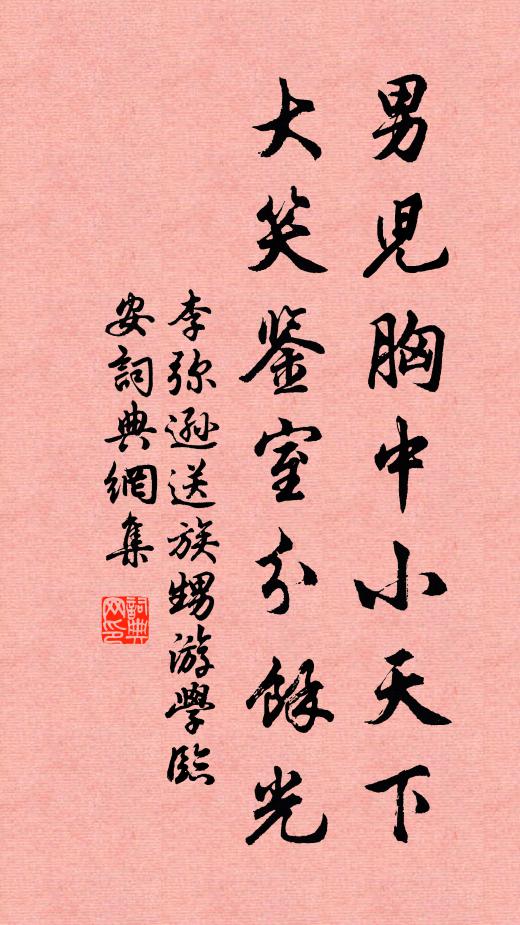 男児胸中小天下
大笑鉴室分餘光
李弥遜送族甥游學臨
安詞典網集
詞典网印